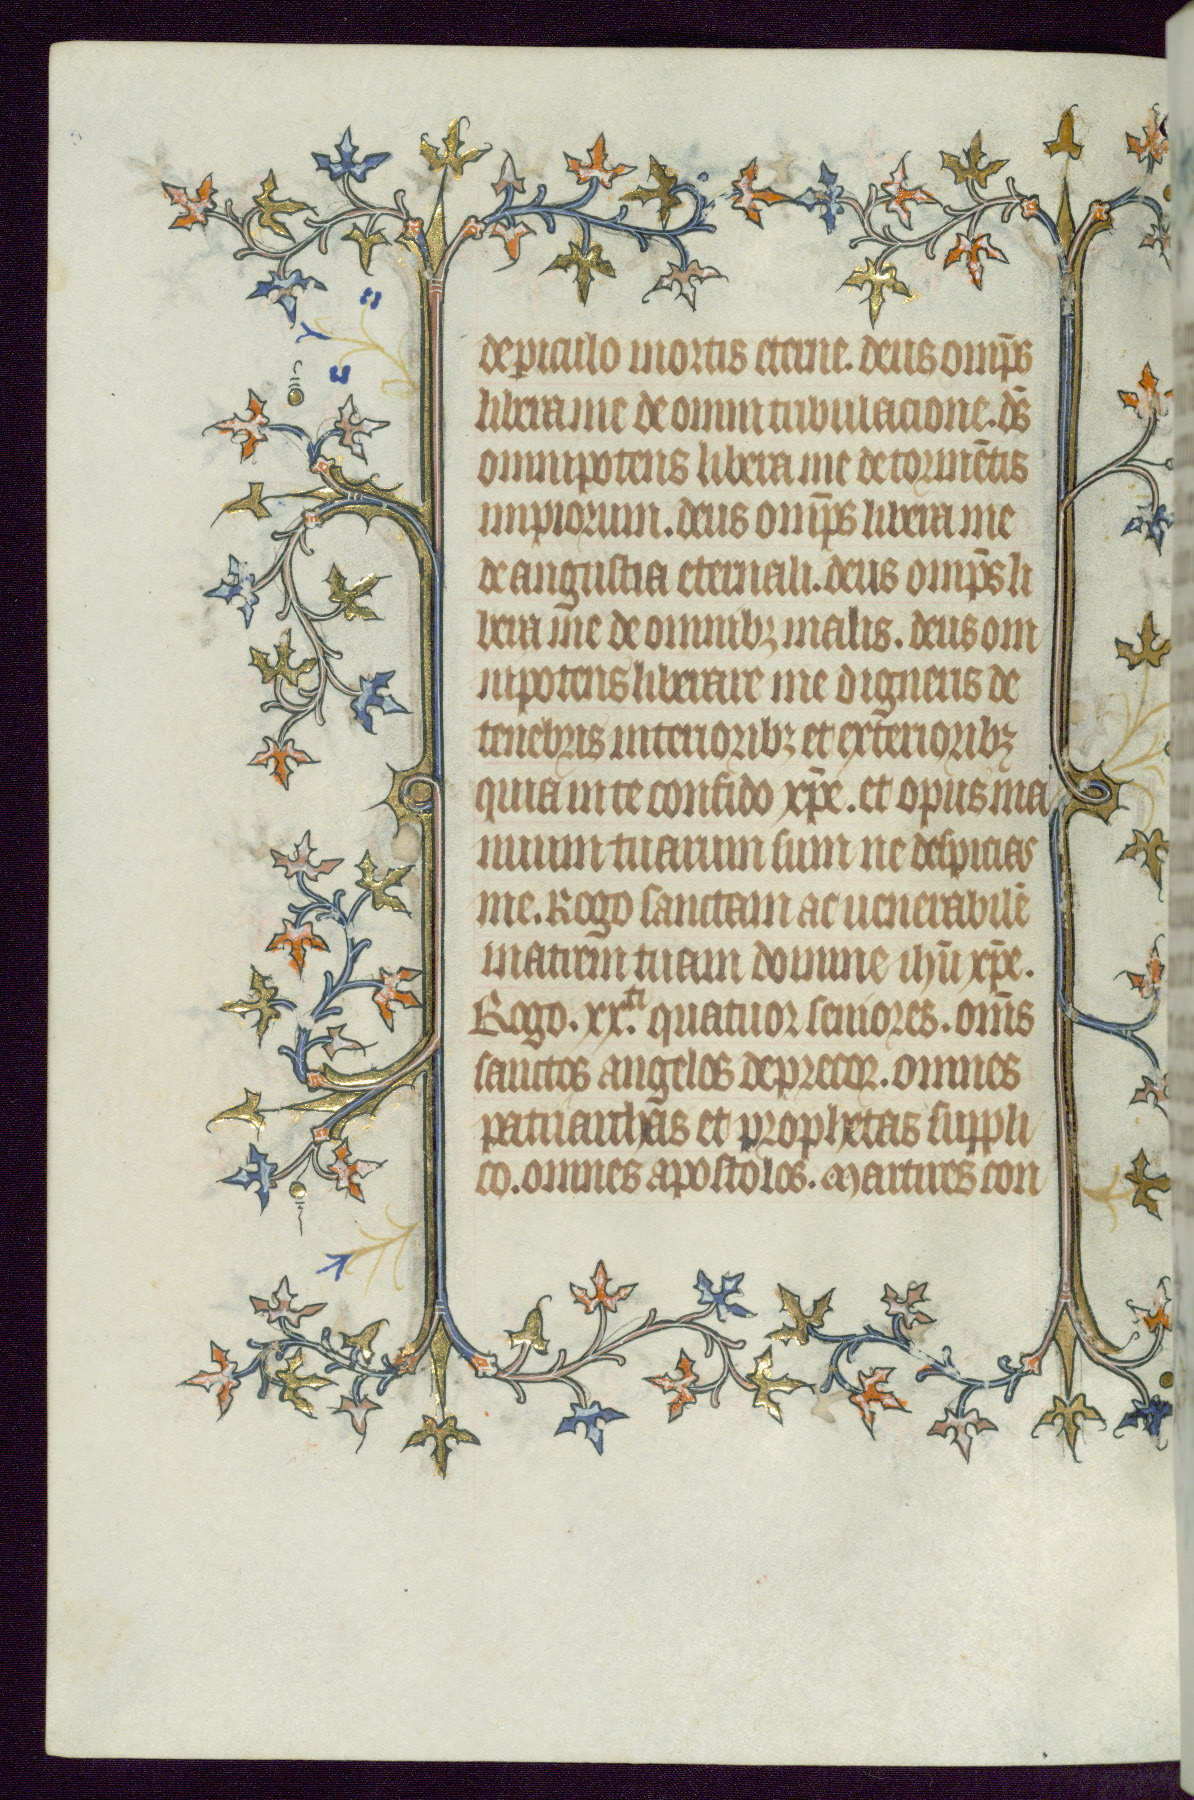 de piculo mortis eterne. deus omp̄s
libera me de omni tribulacione. ds̄
omnipotens libera me de tormētis
impiorum. deus omp̄s libera me
de angustia eternali. deus omp̄s li
bera me de omnibꝫ malis. deus om
nipotens liberare me digneris de
tenebris interioribꝫ et exterioribꝫ
quia in te confido xp̄e. et opus ma
nuum tuarum sum ne despicias
me. Rogo sanctam ac uenerabilē
matrem tuam domine ihū xp̄e.
Rogo. xx.ti quatuor seniores. om̄s
sanctos angelos deprecor. omnes
patriarchas et prophetas suppli
co. omnes apostolos. Martires con